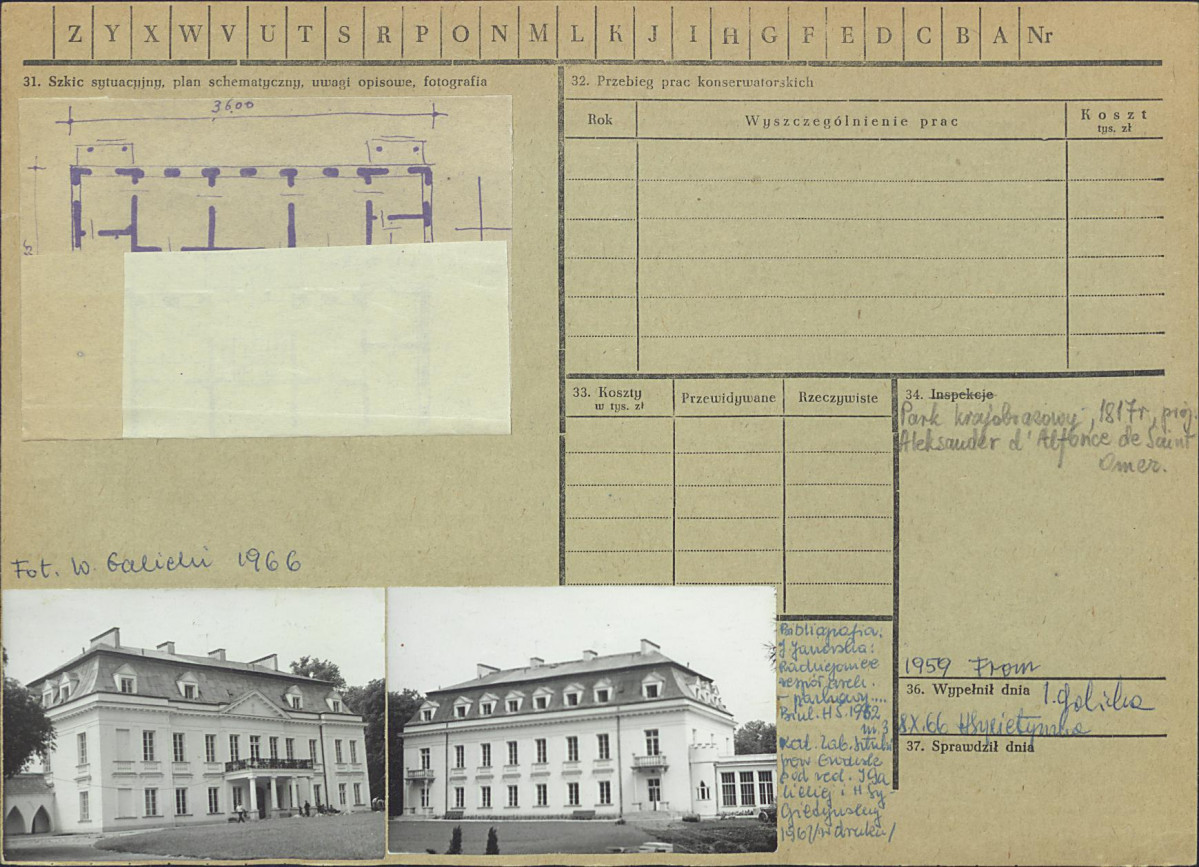 Z Y X W V U T S R P O N M L K J I H G F E D C B A Nr
31. Szkic sytuacyjny, plan schematyczny, uwagi opisowe, fotografia
36.00
Fot. W. Galicki 1966
32. Przebieg prac konserwatorskich
Rok Wyszczególnienie prac Koszt
tys. zł
33. Koszty Przewidywane Rzeczywiste
w tys. zł
34. Inspekcje
Park krajobrazowy, 1817r, proj.
Aleksander d'Alfonce de Saint
Omer.
Bibliografia:
J. Janowska:
Radziejowice
zespół arch.
- parkowy...
Biul. H.S. 1962
nr. 3
Kat. Zab. Sztuki
pow. Grodzisk
pod red. I Ga
lickiej i H Sy
Gietyńskiej
1967/w druku/
1959 From
36. Wypełnił dnia I. Galicka
8X.66 H Sygietyńska
37. Sprawdził dnia